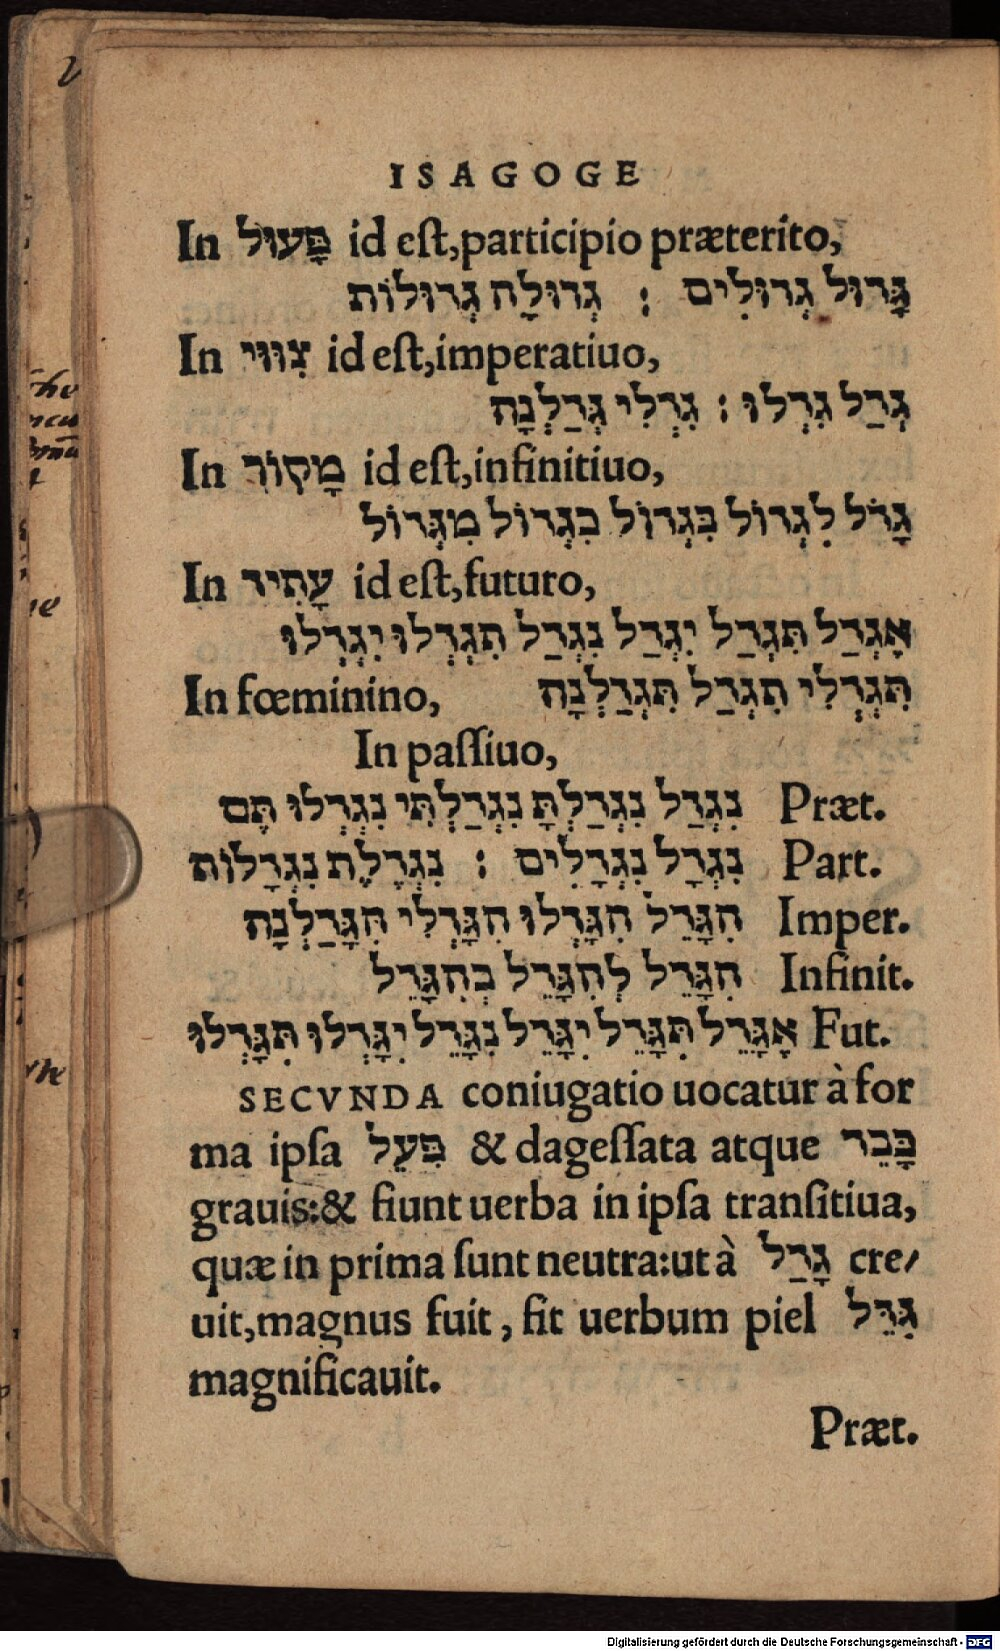 ISAGOGE
In פָּעוּל id eſt,participio præterito,
גָּדוּל גְדוּלִים : גְדוּלָה גְדוּלוֹת
In צִוּוּי id eſt,imperatiuo,
גְּדַל גִדְלוּ : גִּדְלִי גְּדַלְנָה
In מָקוֹר id eſt,infinitiuo,
גָּדֹל לִגְדוֹל בִּגְדוֹל כִגְדוֹל מִגְּדוֹל
In עָתִיד id eſt,futuro,
אֶגְדַל תִּגְדַל יִגְדַל נִגְדַל תִגְדְלוּ יִגְדְלוּ
In fœminino, תִּגְדְלִי תִגְדַל תִּגְדַלְנָה
In paſſiuo,
נִגְדַל נִגְדַלְתָּ נִגְדַלְתִּי נִגְדְלוּ תֶּם Præt.
נִגְדָל נִגְדָלִים : נִגְדֶלֶת נִגְדָלוֹת Part.
הִגָּדֵל הִגָּדְלוּ הִגָּדְלִי הִגָּדַלְנָה Imper.
הִגָּדֵל לְהִגָּדֵל בְּהִגָּדֵל Infinit.
אֶגָּדֵל תִּגָּדֵל יִגָּדֵל נִגָּדֵל יִגָּדְלוּ תִּגָּדְלוּ Fut.
SECVNDA coniugatio uocatur à for
ma ipſa פִּעֵל & dageſſata atque כָּבֵד
grauis:& fiunt uerba in ipſa tranſitiua,
quæ in prima ſunt neutra:ut à גָּדַל cre/
uit,magnus fuit, fit uerbum piel גִּדֵּל
magnificauit.
Præt.
Digitalisierung gefördert durch die Deutsche Forschungsgemeinschaft - DFG